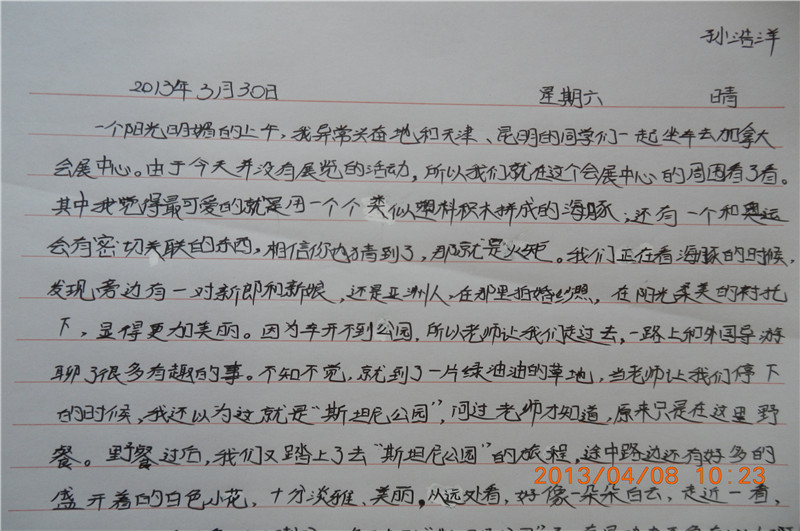 孙浩洋
2013年3月30日 星期六 晴
一个阳光明媚的上午，我异常兴奋地和天津、昆明的同学们一起坐车去加拿大
会展中心。由于今天并没有展览的活动，所以我们就在这个会展中心的周围看了看。
其中我觉得最可爱的就是用一个个类似塑料积木拼成的海豚；还有一个和奥运
会有密切关联的东西，相信你也猜到了，那就是火炬。我们正在看海豚的时候，
发现旁边有一对新郎和新娘，还是亚洲人，在那里拍婚纱照，在阳光柔美的衬托
下，显得更加美丽。因为车开不到公园，所以老师让我们走过去，一路上和外国导游
聊了很多有趣的事。不知不觉，就到了一片绿油油的草地，当老师让我们停下
的时候，我还以为这就是“斯坦尼公园”，问过老师才知道，原来只是在这里野
餐。野餐过后，我们又踏上了去“斯坦尼公园”的旅程，途中路边还有好多的
盛开着的白色小花，十分淡雅、美丽，从远处看，好像一朵朵白云，走近一看，
2013/04/08 10:23